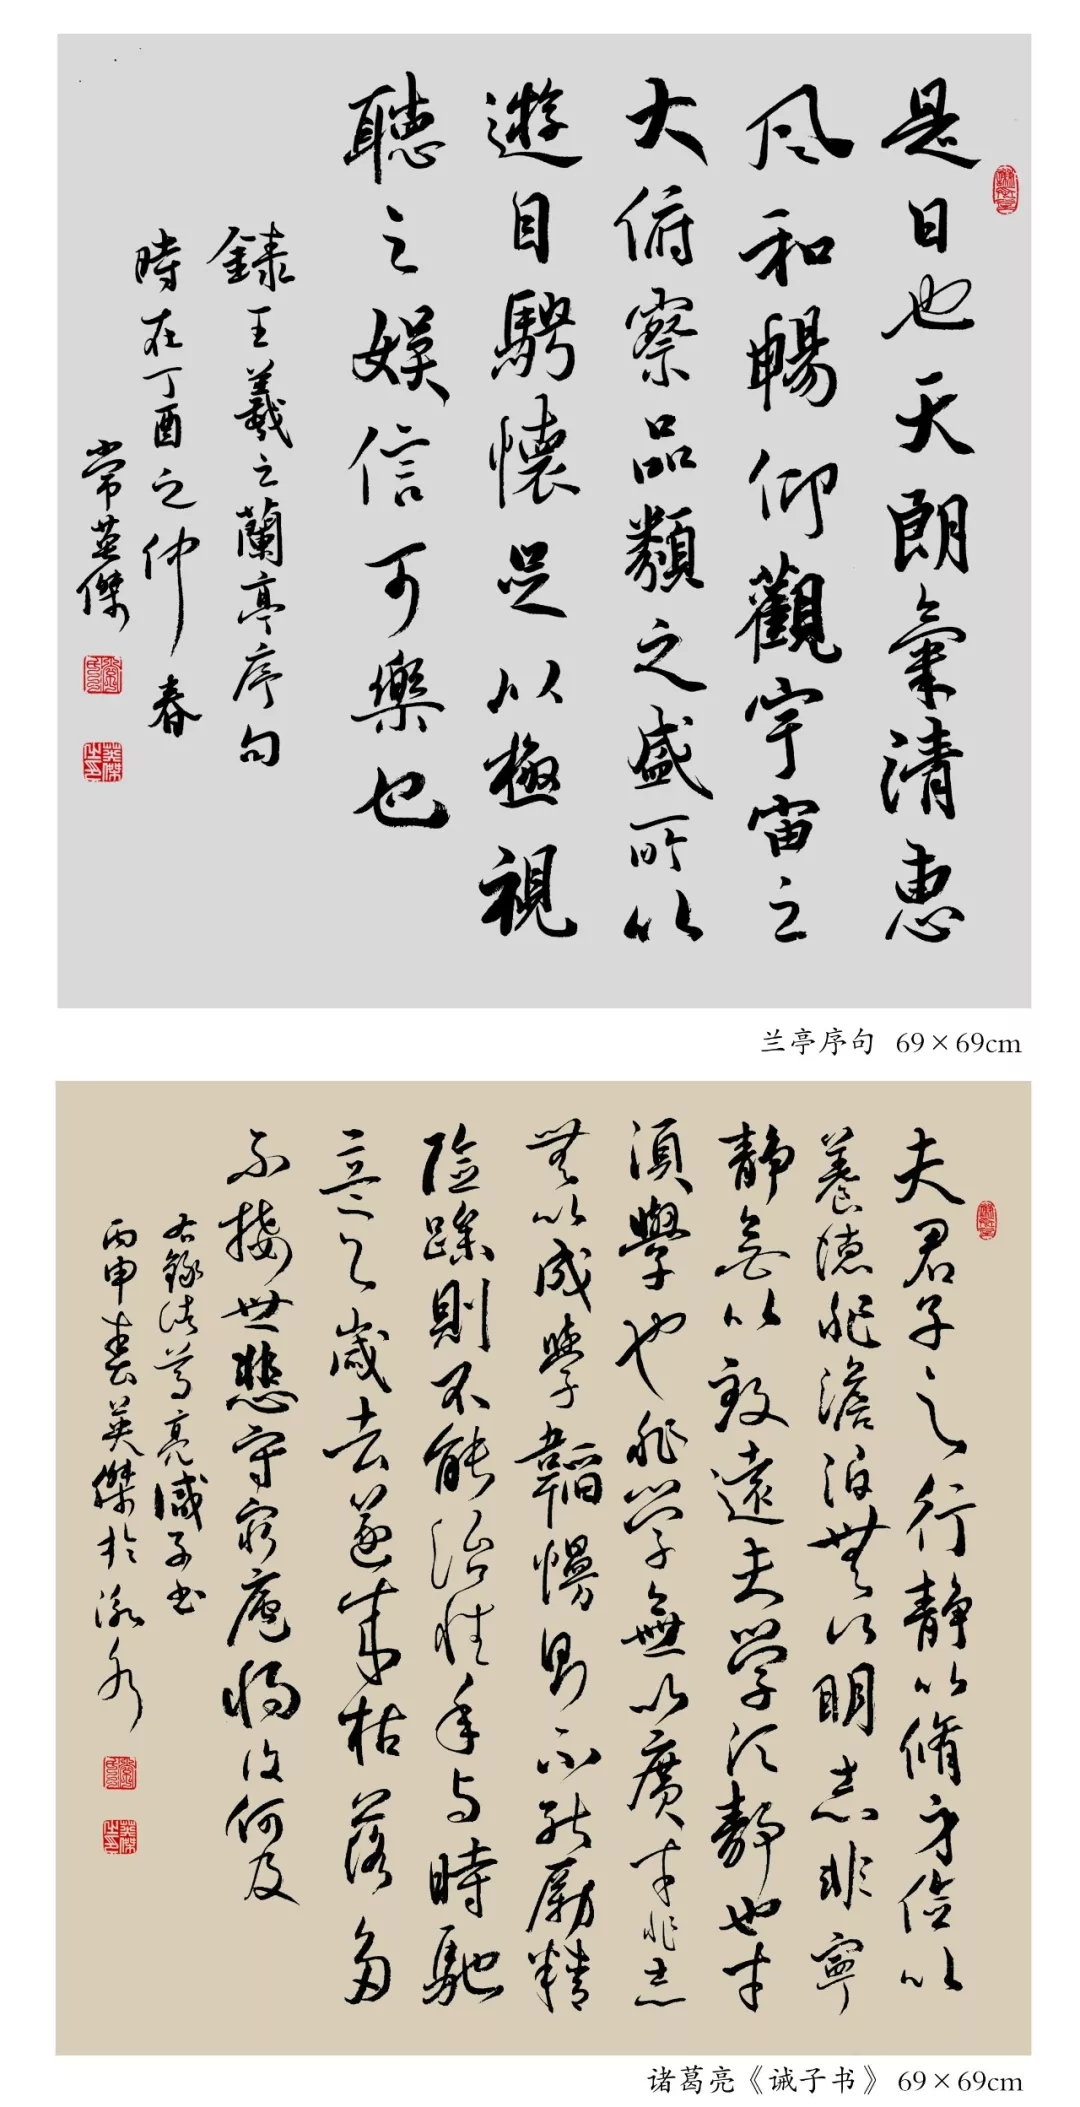 是日也天朗氣清惠
風和暢仰觀宇宙之
大俯察品類之盛所以
遊目騁懷足以極視
聽之娛信可樂也
録王羲之蘭亭序句
時在丁酉之仲春
常英傑
兰亭序句 69×69cm
夫君子之行静以脩身儉以
養德非澹泊無以明志非寧
静無以致遠夫學須静也才
須學也非學無以廣才非志
無以成學韜慢則不能勵精
险躁則不能治性年与時馳
意与歲去遂成枯落多
不接世悲守窮廬将復何及
右録諸葛亮誡子书
丙申春英傑於
诸葛亮《诫子书》69×69cm